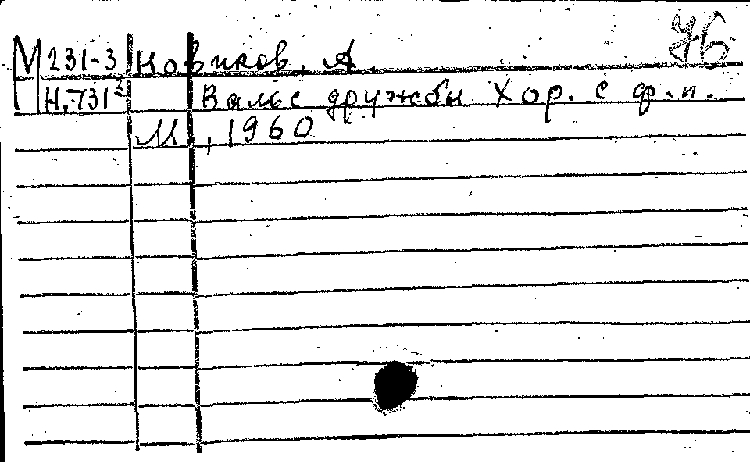 76
М 231-3 Новиков, А.
Н.731² Вальс дружбы Хор. с ф.п.
М., 1960